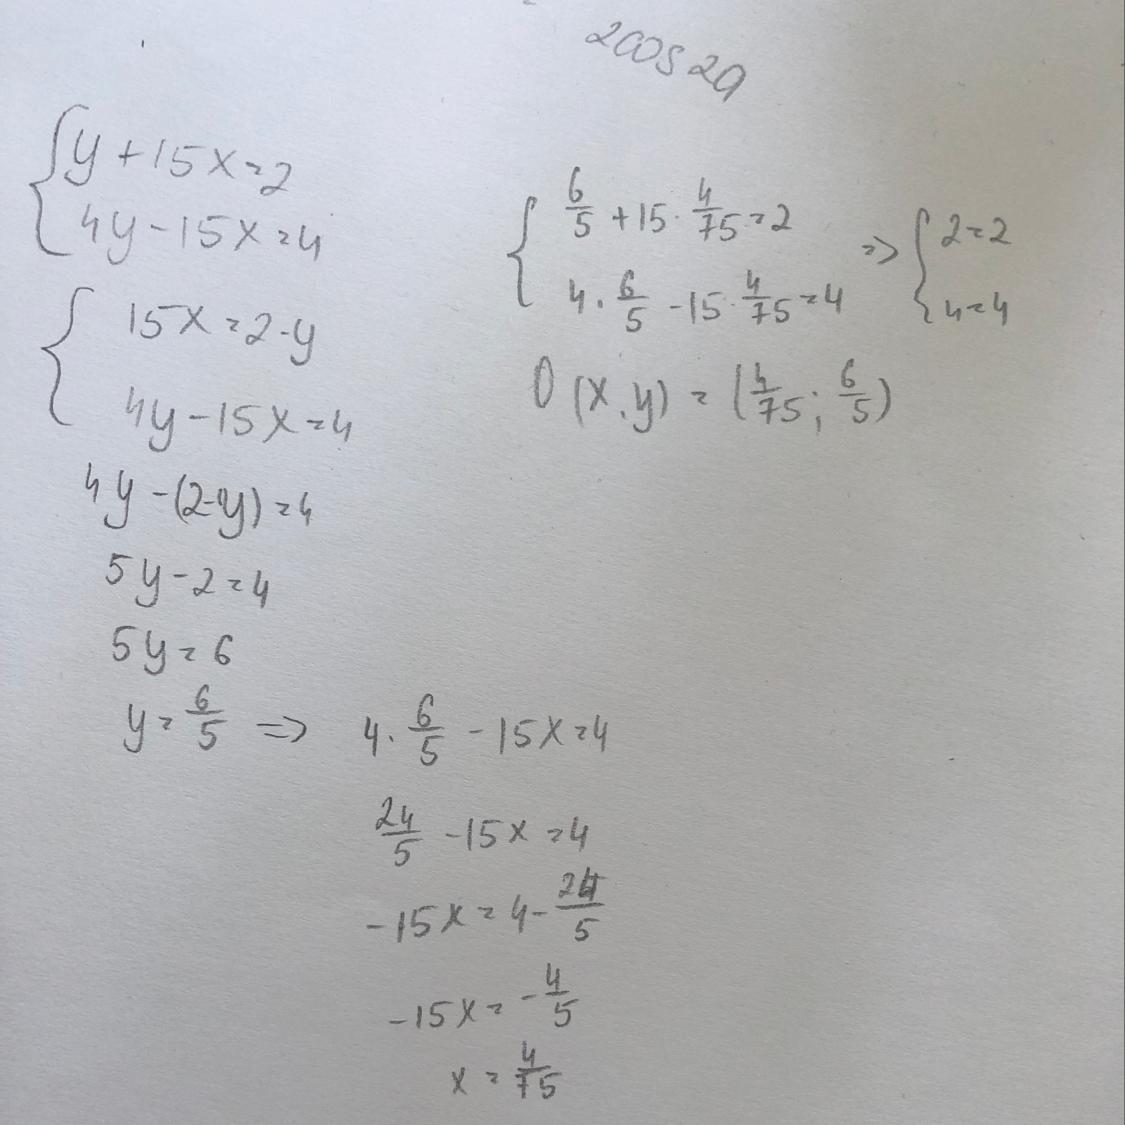 2cos2a
y+15x=2
4y-15x=4
15x=2-y
4y-15x=4
4y-(2-y)=4
5y-2=4
5y=6
y=6/5 => 4·6/5-15x=4
24/5-15x=4
-15x=4-24/5
-15x=-4/5
x=4/75
6/5+15·4/75=2 => 2=2
4·6/5-15·4/75=4 4=4
O(x,y)=(4/75;6/5)